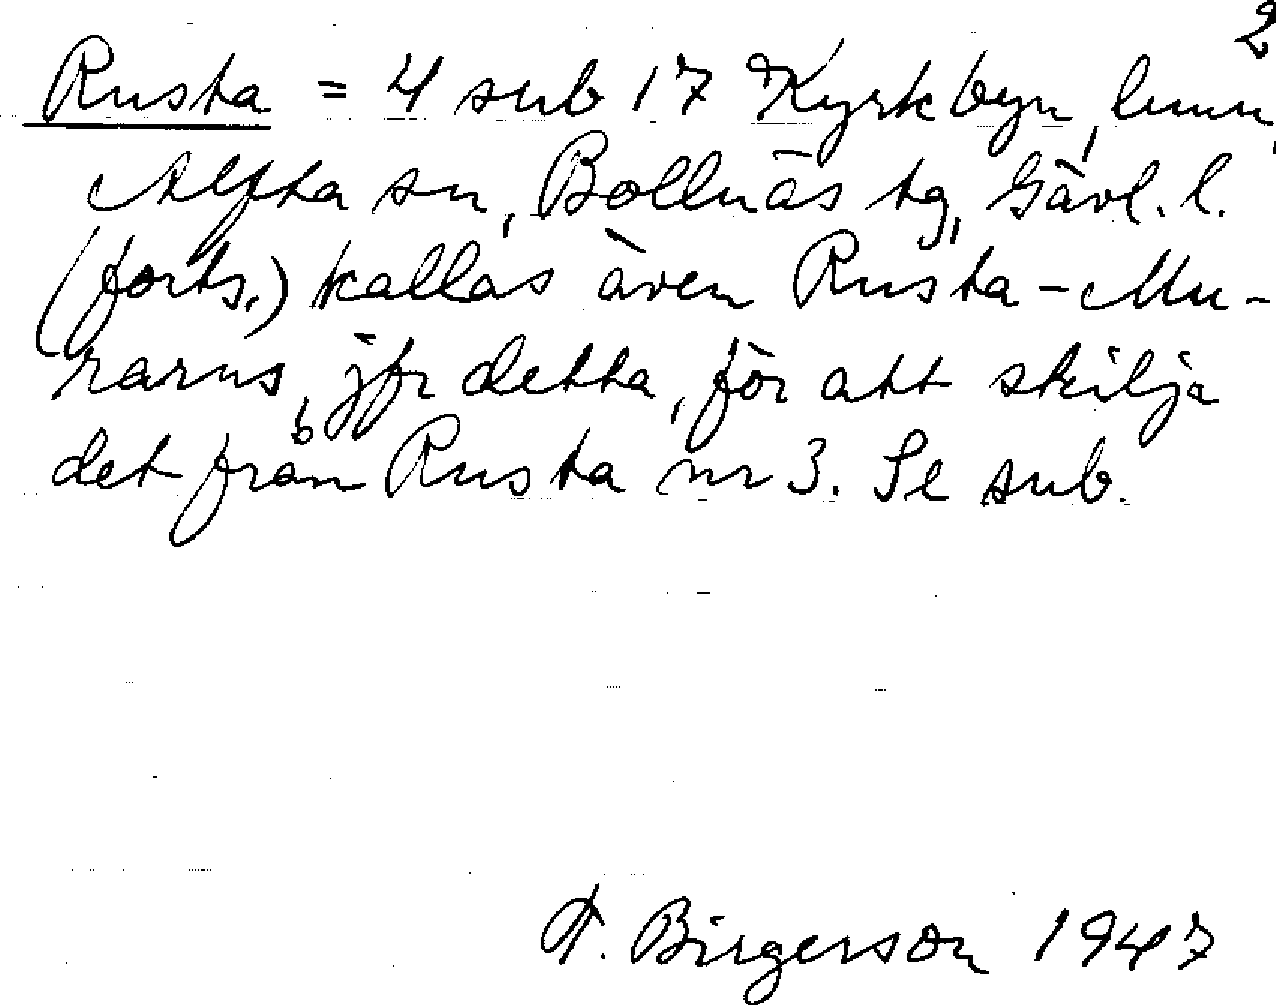 2
Rusta = 4 sub 17 Kyrkbyn, hmn,
Alfta sn, Bollnäs tg, Gävl. l.
(forts.) kallas även Rusta-Mu-
rarns, jfr detta, för att skilja
det från Rusta nr 3. Se sub.
F. Birgerson 1947